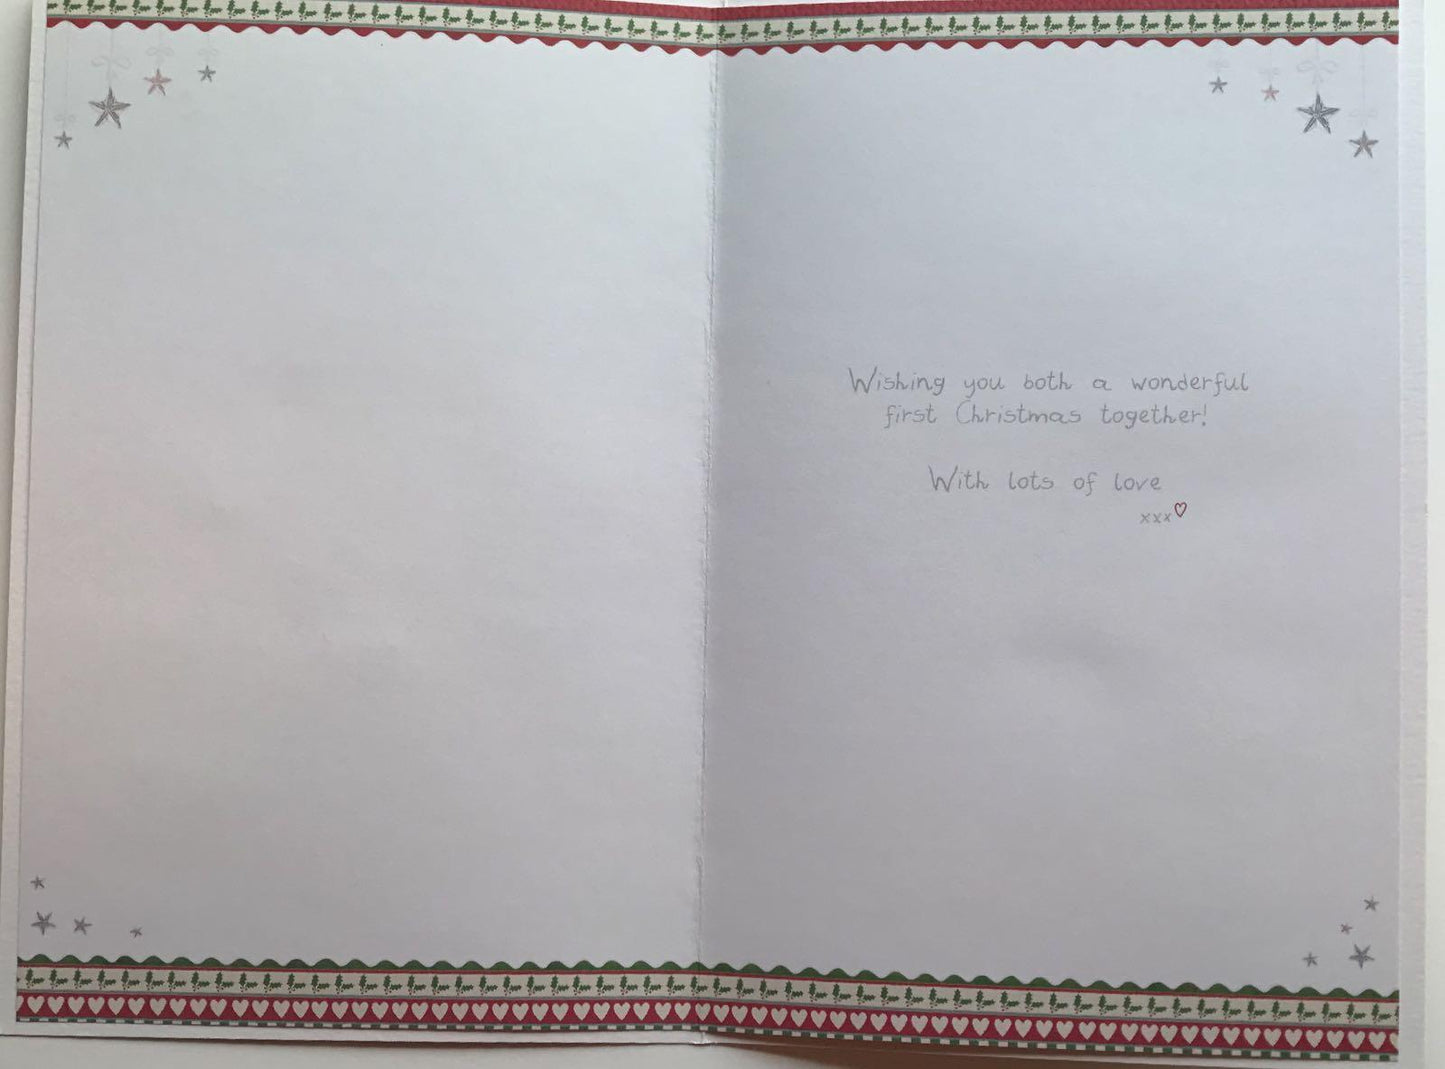 Wishing you both a wonderful
first Christmas together!
With lots of love
xxx♡